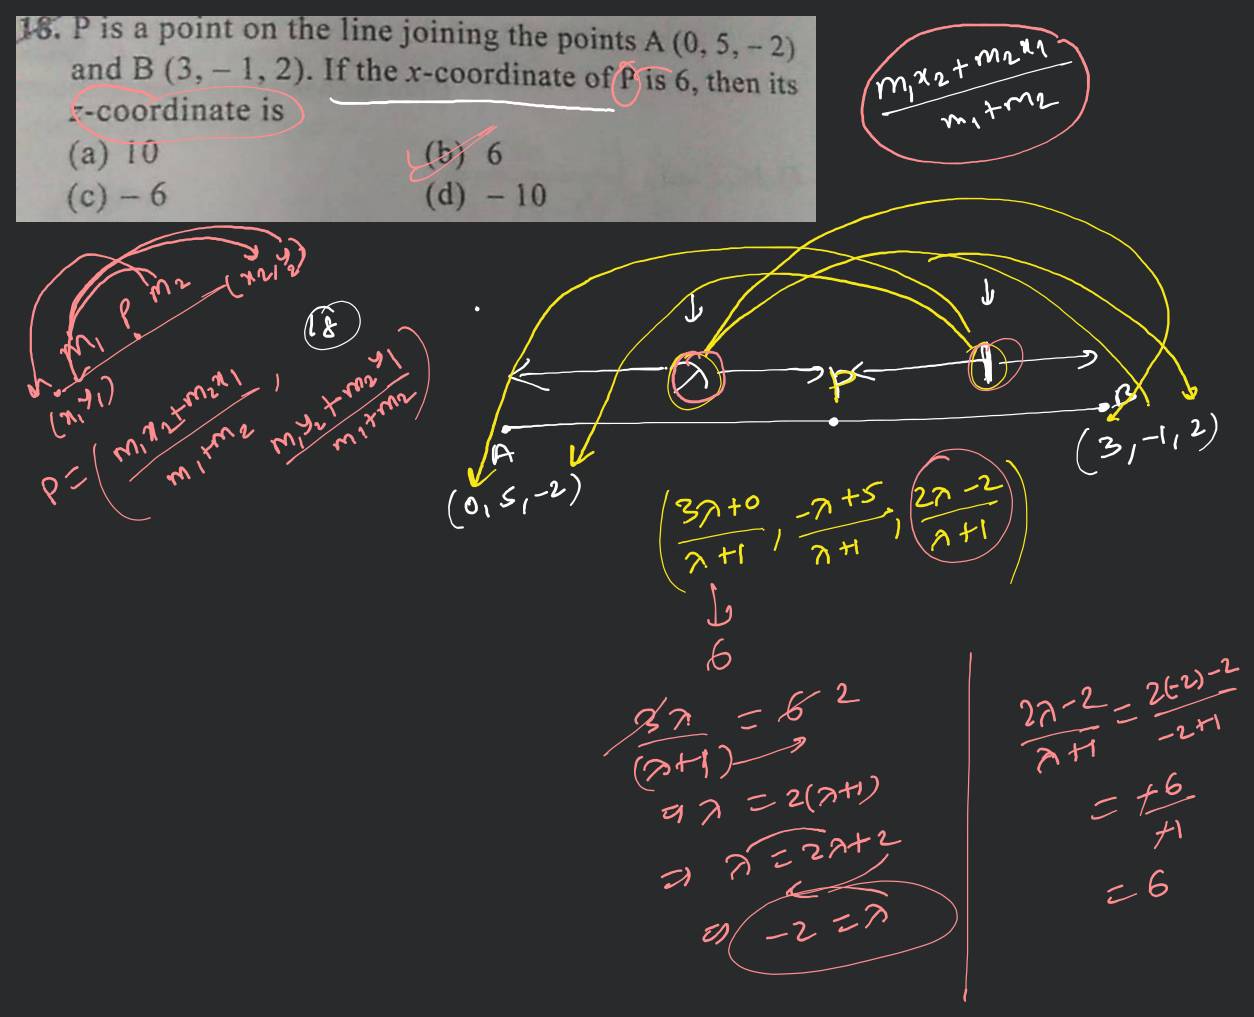 18. P is a point on the line joining the points A (0, 5, – 2)
and B (3, – 1, 2). If the x-coordinate of P is 6, then its
z-coordinate is
(a) 10
(b) 6
(c) – 6
(d) – 10
m₁x₂ + m₂x₁ / m₁ + m₂
m₁ P m₂ (x₂, y₂)
(x₁, y₁)
18
P = ( m₁x₂ + m₂x₁ / m₁ + m₂ , m₁y₂ + m₂y₁ / m₁ + m₂ )
λ P 1
A B
(0, 5, -2) (3, -1, 2)
( 3λ+0 / λ+1 , -λ+5 / λ+1 , 2λ-2 / λ+1 )
↓
6
3λ / (λ+1) = 6 2
⇒ λ = 2(λ+1)
⇒ λ = 2λ+2
⇒ -2 = λ
2λ-2 / λ+1 = 2(-2)-2 / -2+1
= -6 / -1
= 6